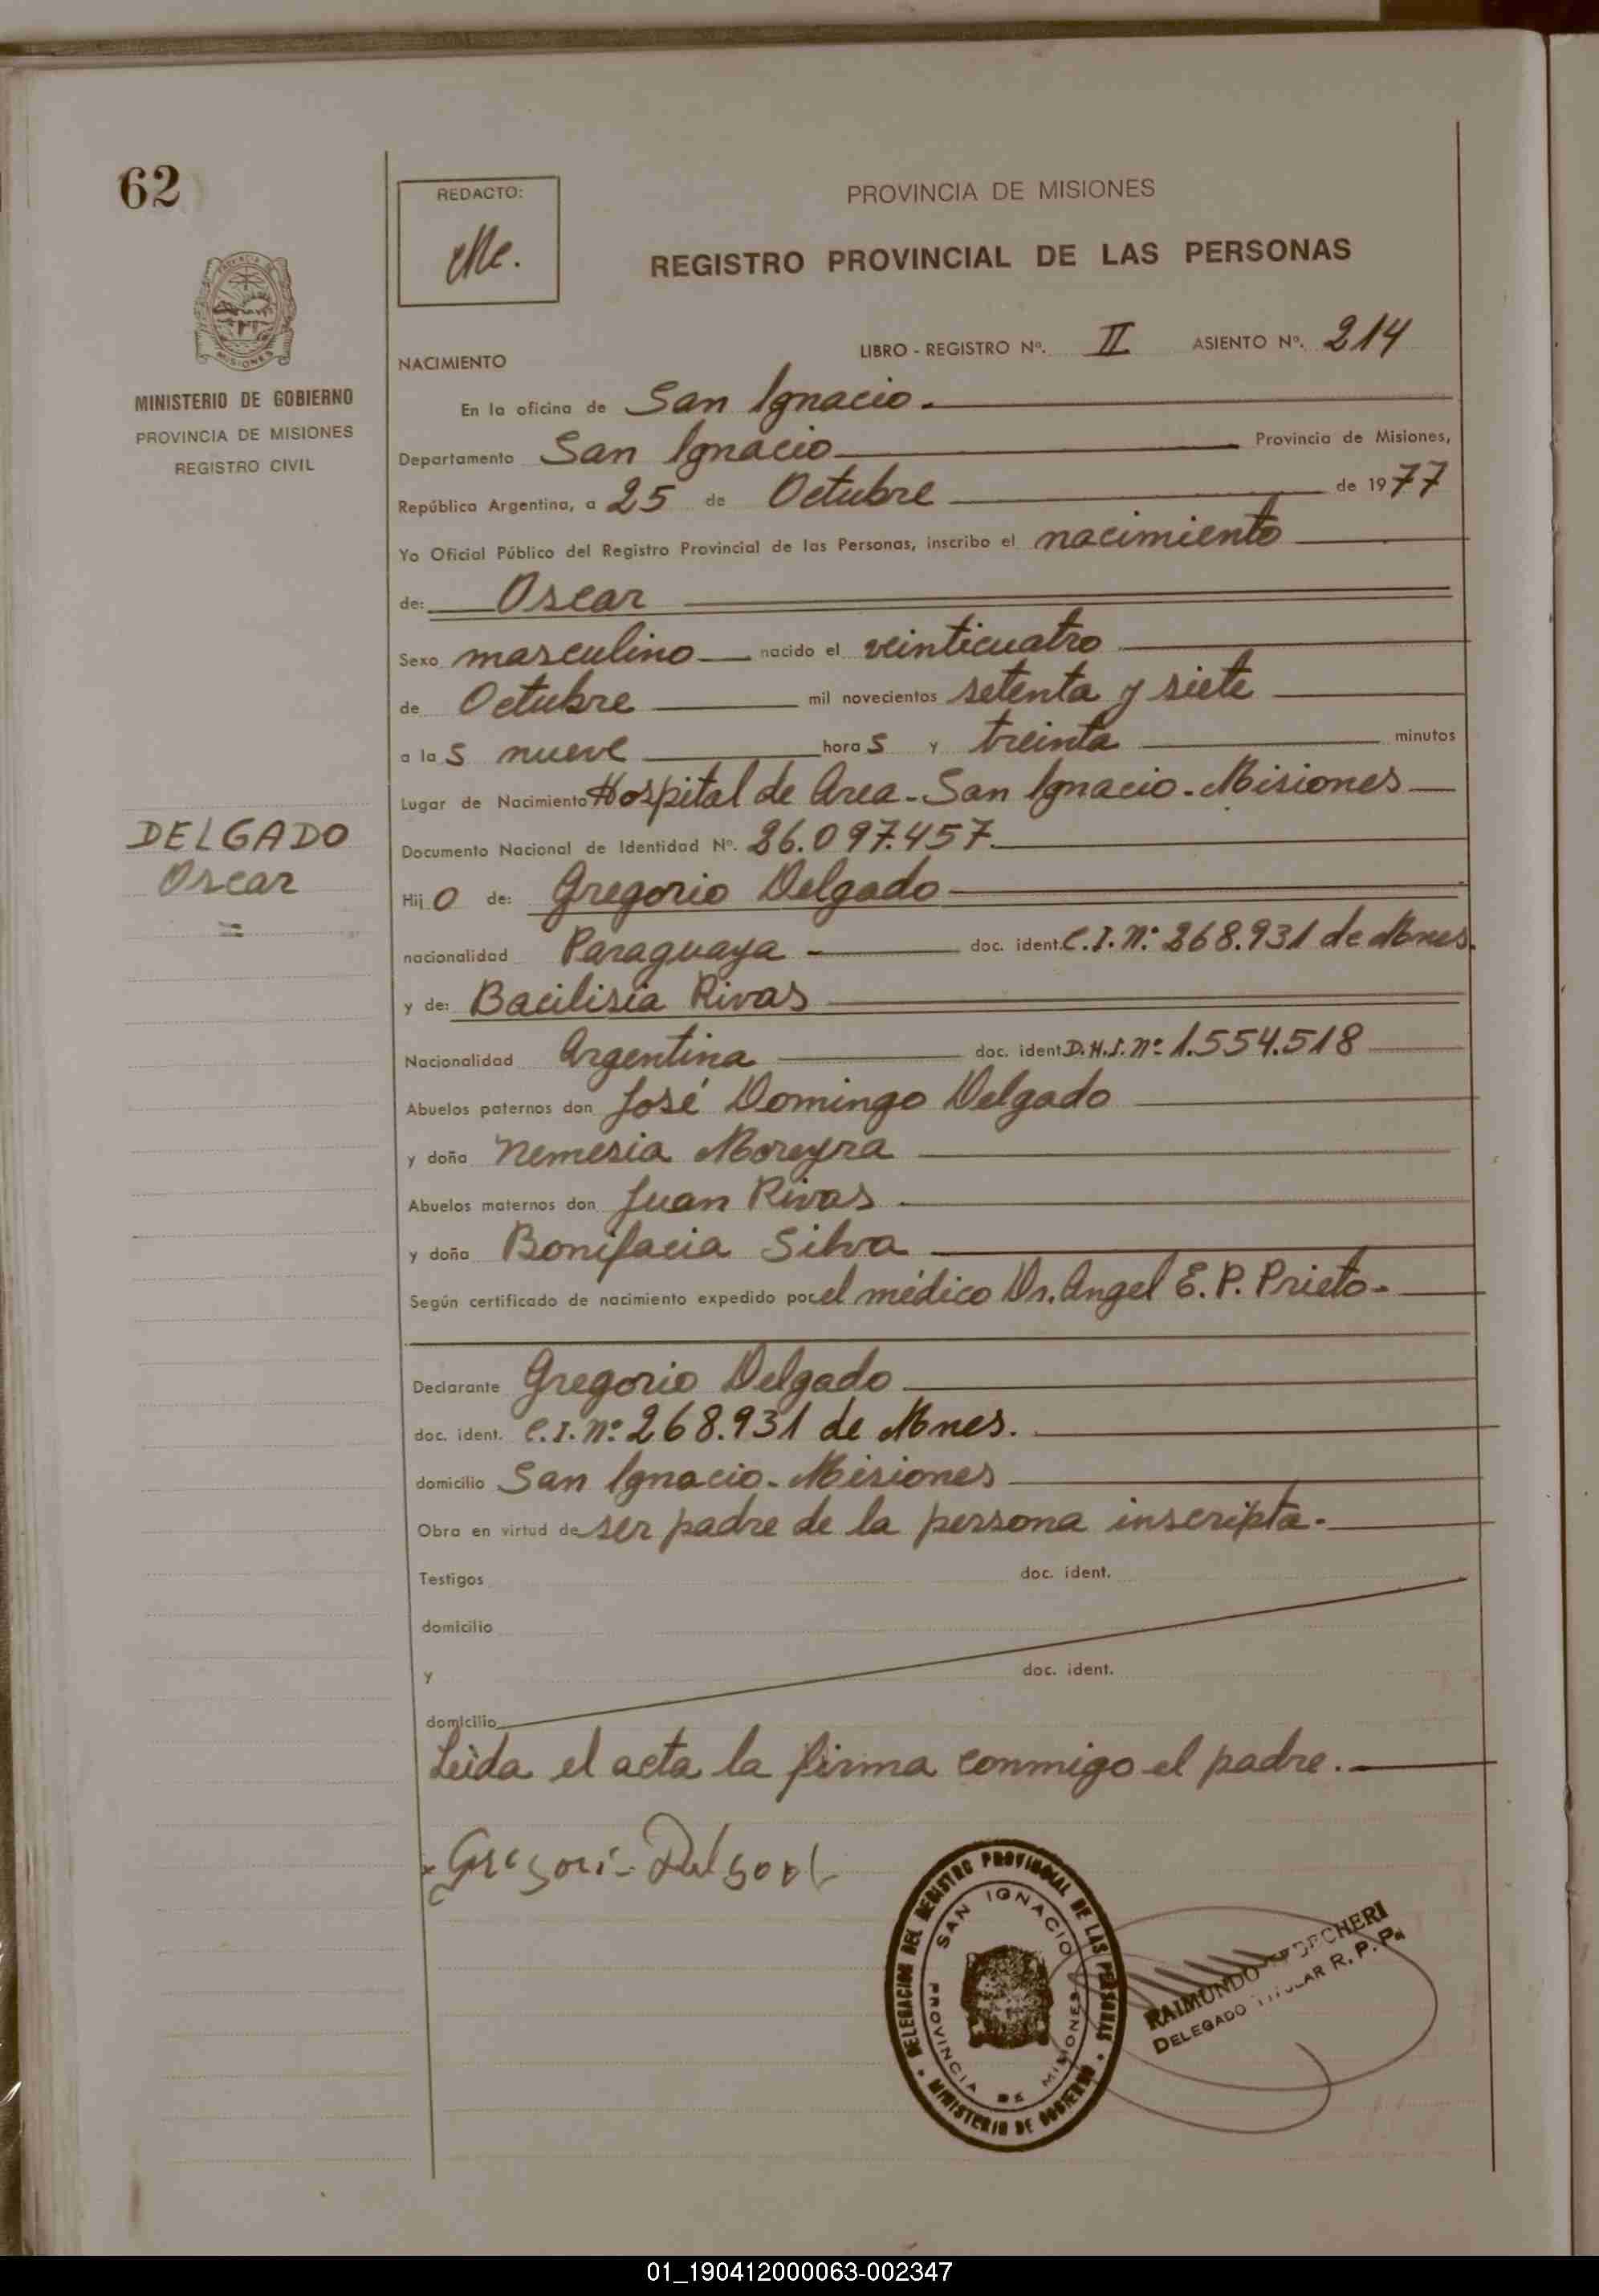 62
REDACTO:
PROVINCIA DE MISIONES
REGISTRO PROVINCIAL DE LAS PERSONAS
LIBRO - REGISTRO Nº. II ASIENTO Nº. 214
NACIMIENTO
MINISTERIO DE GOBIERNO
PROVINCIA DE MISIONES
REGISTRO CIVIL
En la oficina de San Ignacio.
Departamento San Ignacio Provincia de Misiones,
República Argentina, a 25 de Octubre de 1977
Yo Oficial Público del Registro Provincial de las Personas, inscribo el nacimiento
de: Oscar
Sexo masculino nacido el veinticuatro
de Octubre mil novecientos setenta y siete
a las nueve horas y treinta minutos
Lugar de Nacimiento Hospital de Area - San Ignacio - Misiones
DELGADO
Oscar
Documento Nacional de Identidad Nº. 26.097.457.
Hijo de: Gregorio Delgado
nacionalidad Paraguaya doc. ident. C.I. Nº 268.931 de Mnes.
y de: Bacilisia Rivas
Nacionalidad Argentina doc. ident. D.N.I. Nº 1.554.518
Abuelos paternos don José Domingo Delgado
y doña Nemesia Moreyra
Abuelos maternos don Juan Rivas
y doña Bonifacia Silva
Según certificado de nacimiento expedido por el médico Dr. Angel E. P. Prieto.
Declarante Gregorio Delgado
doc. ident. C.I. Nº 268.931 de Mnes.
domicilio San Ignacio - Misiones
Obra en virtud de ser padre de la persona inscripta.
Testigos doc. ident.
domicilio
y doc. ident.
domicilio
Leida el acta la firma conmigo el padre.
DELEGACION DEL REGISTRO PROVINCIAL DE LAS PERSONAS
MINISTERIO DE GOBIERNO
SAN IGNACIO
PROVINCIA DE MISIONES
RAIMUNDO
DELEGADO TITULAR R. P. P.
01_190412000063-002347